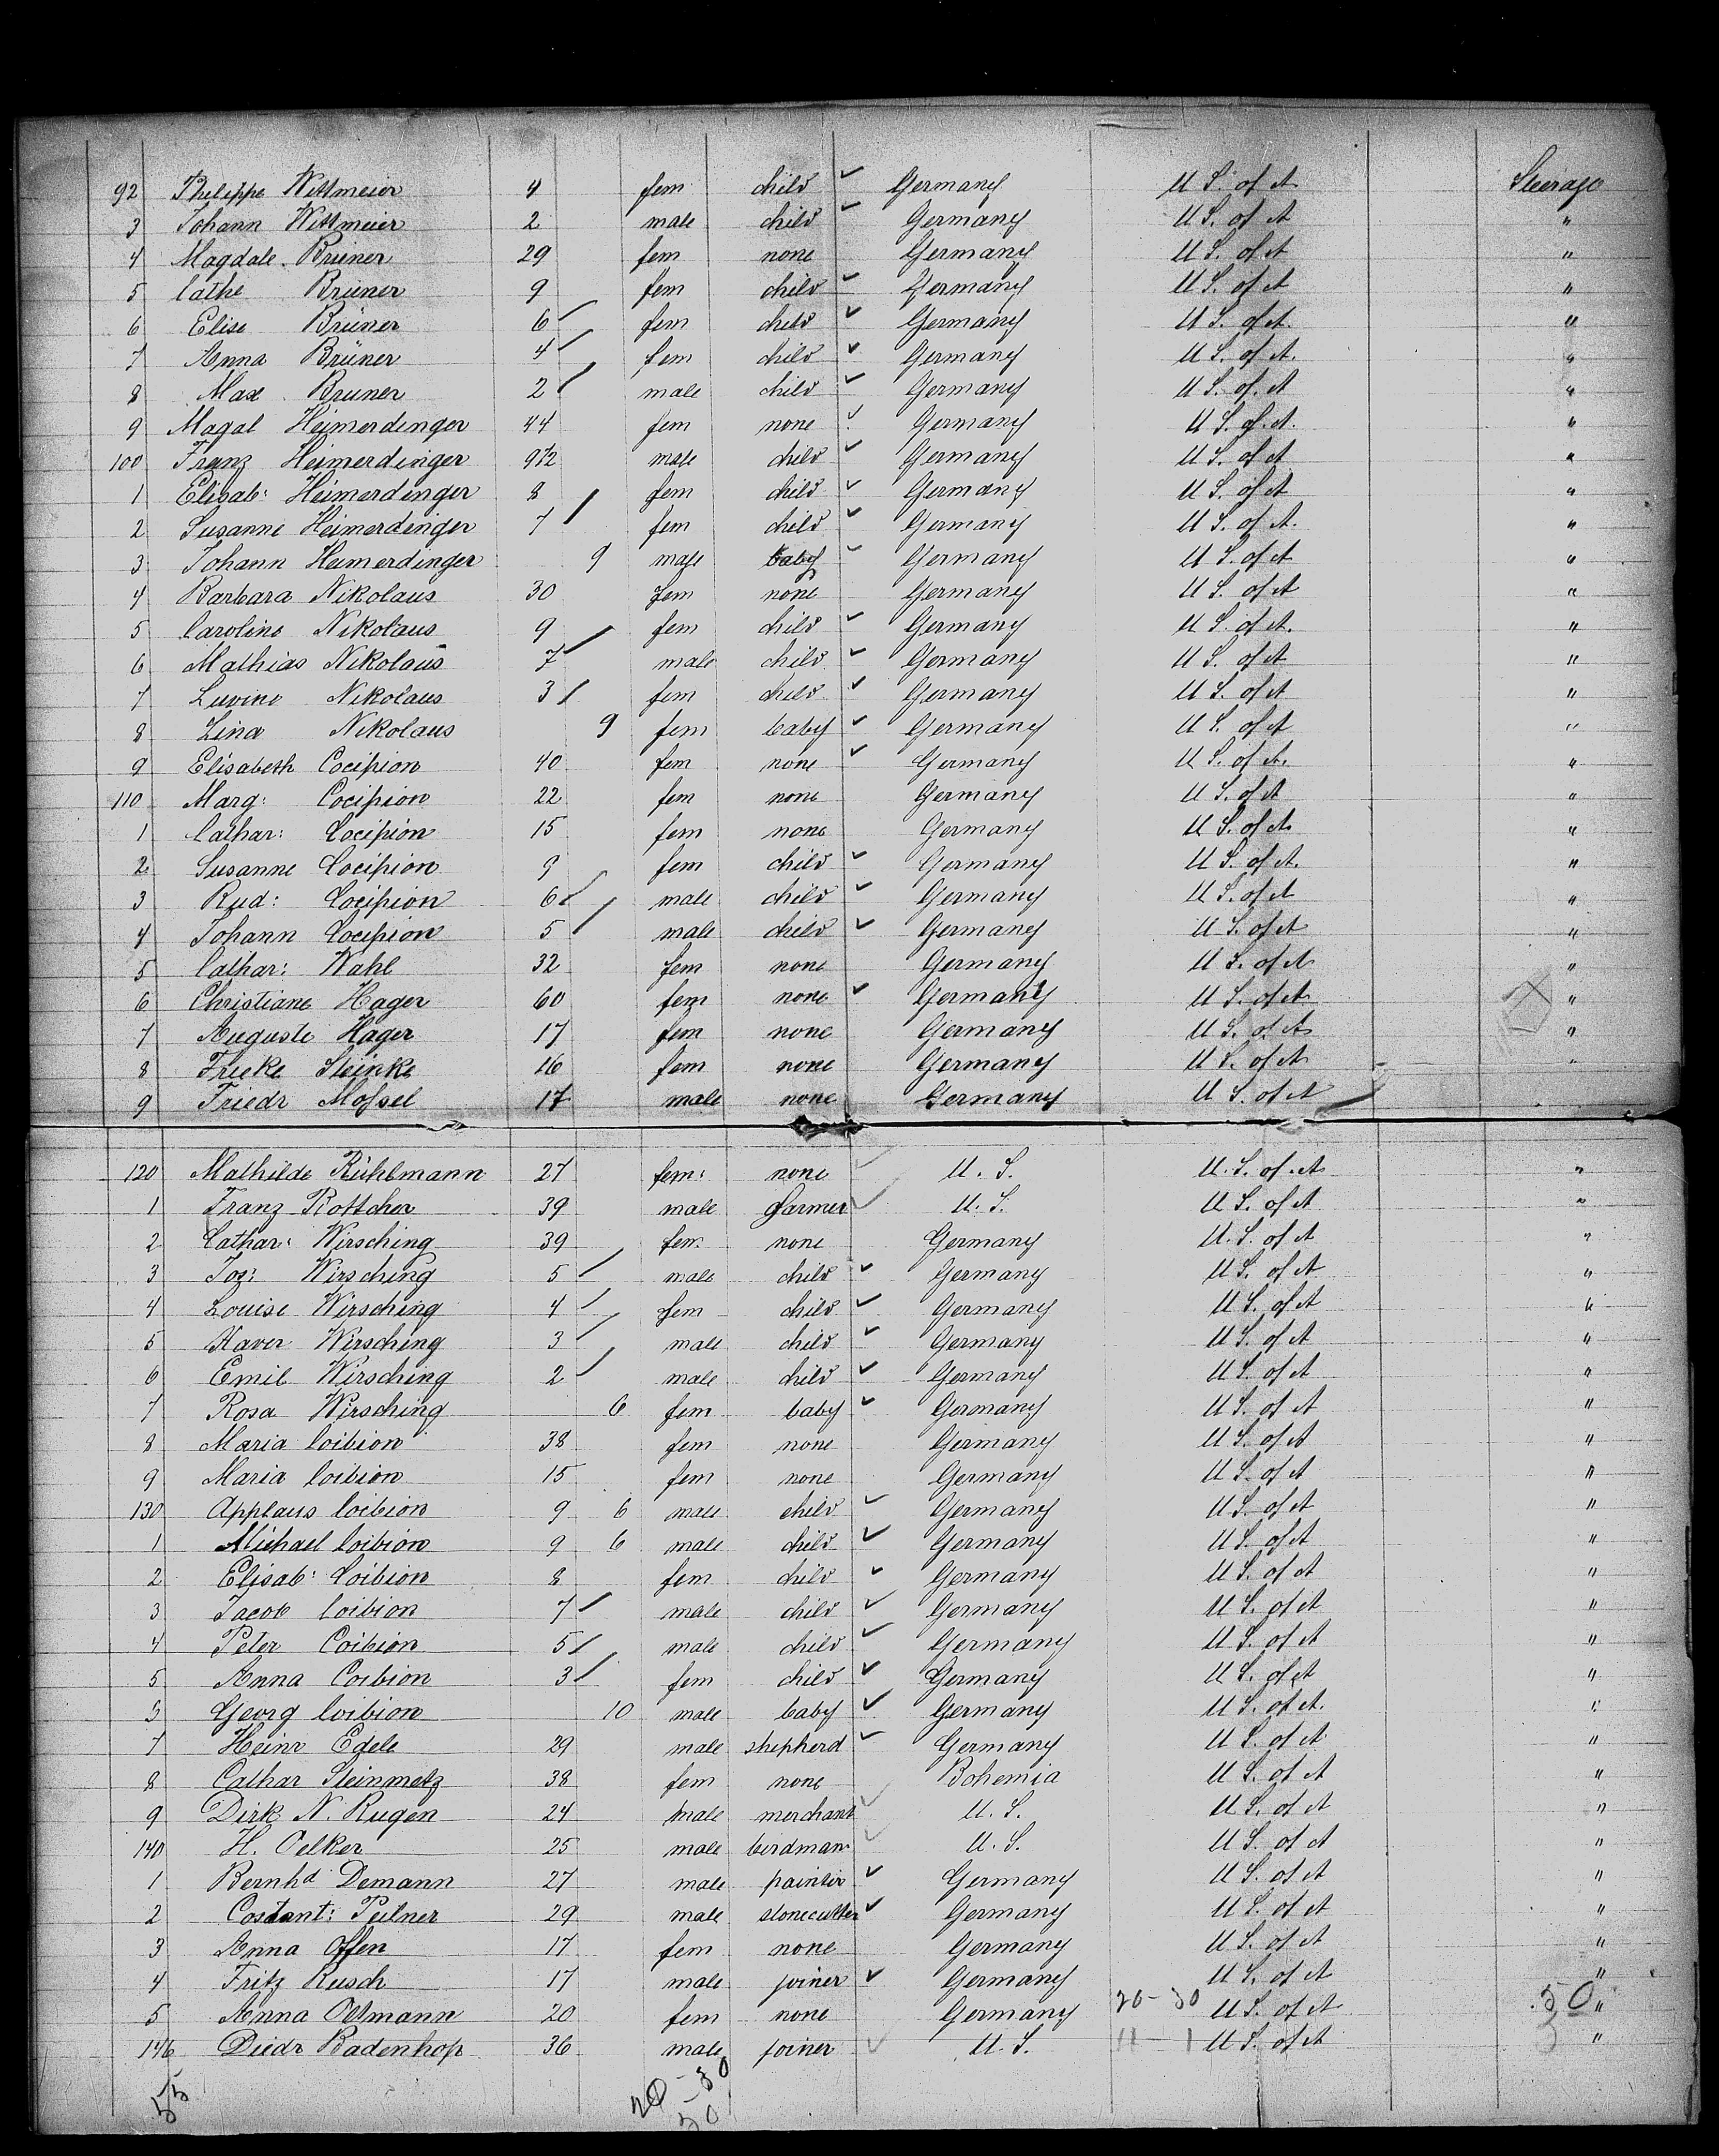 92 Philippe Wittmeier 4 fem child ✓ Germany U S. of A Steerage
3 Johann Wittmeier 2 male child ✓ Germany U S. of A "
4 Magdale. Brüner 29 fem none Germany U S. of A "
5 Cathe Brüner 9 fem child ✓ Germany U S. of A "
6 Elise Brüner 6 fem child ✓ Germany U S. of A. "
7 Anna Brüner 4 fem child ✓ Germany U S. of A. "
8 Max Brüner 2 male child ✓ Germany U S. of. A "
9 Magal Heimerdinger 44 fem none ✓ Germany U S. of. A. "
100 Franz Heimerdinger 9 1/2 male child ✓ Germany U S. of A "
1 Elisab: Heimerdinger 8 fem child ✓ Germany U S. of A "
2 Susanne Heimerdinger 7 fem child ✓ Germany U S. of A. "
3 Johann Heimerdinger 9 male baby ✓ Germany U S. of A "
4 Barbara Nikolaus 30 fem none Germany U S. of A "
5 Caroline Nikolaus 9 fem child ✓ Germany U S. of A. "
6 Mathias Nikolaus 7 male child ✓ Germany U S. of A "
7 Luvine Nikolaus 3 fem child ✓ Germany U S. of A "
8 Lina Nikolaus 9 fem baby ✓ Germany U S. of A "
9 Elisabeth Cocipion 40 fem none ✓ Germany U S. of A. "
110 Marg: Cocipion 22 fem none Germany U S. of A "
1 Cathar: Cocipion 15 fem none Germany U S. of A "
2 Susanne Cocipion 9 fem child ✓ Germany U S. of A. "
3 Rud: Cocipion 6 male child ✓ Germany U S. of A "
4 Johann Cocipion 5 male child ✓ Germany U S. of A "
5 Cathar: Wahl 32 fem none Germany U S. of A "
6 Christiane Hager 60 fem none ✓ Germany U S. of A "
7 Auguste Hager 17 fem none Germany U S. of A "
8 Frieke Steinke 26 fem none Germany U S. of A "
9 Friedr Mossel 17 male none Germany U S. of A
120 Mathilde Rühlmann 27 fem: none ✓ U. S. U. S. of. A "
1 Franz Rottcher 39 male farmer ✓ U. S. U S. of A "
2 Cathar: Wirsching 39 fem. none Germany U. S. of A "
3 Joz: Wirsching 5 male child ✓ Germany U S. of A "
4 Louise Wirsching 4 fem child ✓ Germany U S. of A "
5 Xaver Wirsching 3 male child ✓ Germany U S. of A "
6 Emil Wirsching 2 male child ✓ Germany U S. of A "
7 Rosa Wirsching 6 fem baby ✓ Germany U S. of A "
8 Maria Coibion 38 fem none Germany U S. of A "
9 Maria Coibion 15 fem none Germany U S. of A "
130 Applaus Coibion 9 6 male child ✓ Germany U S. of A "
1 Michael Coibion 9 6 male child ✓ Germany U S. of A "
2 Elisab: Coibion 8 fem child ✓ Germany U S. of A "
3 Jacob Coibion 7 male child ✓ Germany U S. of A "
4 Peter Coibion 5 male child ✓ Germany U S. of A "
5 Anna Coibion 3 fem child ✓ Germany U S. of A "
Georg Coibion 10 male baby ✓ Germany U S. of A. "
7 Heinr Edele 29 male shepherd ✓ Germany U S. of A "
8 Cathar Steinmetz 38 fem none Bohemia U S. of A "
9 Dirk N. Rugen 24 male merchant ✓ U. S. U S. of A "
140 H. Oelker 25 male birdman ✓ U. S. U S. of A "
1 Bernhd Demann 27 male painter ✓ Germany U S. of A "
2 Costant: Pulner 29 male stonecutter ✓ Germany U S. of A "
3 Anna Offen 17 fem none Germany U S. of A "
4 Fritz Rusch 17 male joiner ✓ Germany U S. of A "
5 Anna Oltmann 20 fem none Germany 20-30 U S. of A 50 "
146 Diedr Badenhop 36 male joiner ✓ U. S. 11-1 U S. of A 5 "
55 20-30
50